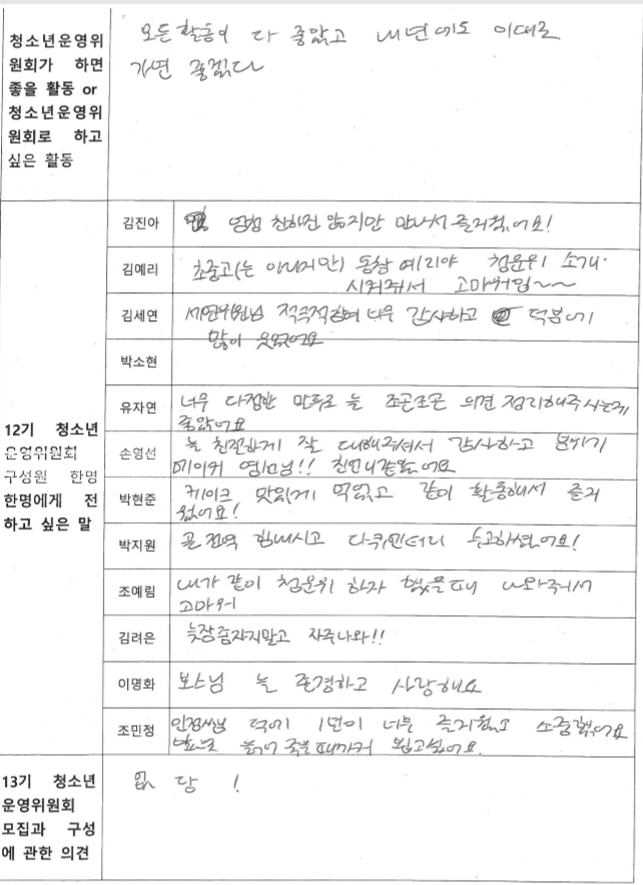 청소년운영위
원회가 하면
좋을 활동 or
청소년운영위
원회로 하고
싶은 활동
모든 활동이 다 좋았고 내년에도 이대로
가면 좋겠다
12기 청소년
운영위원회
구성원 한명
한명에게 전
하고 싶은 말
김진아
엄청 친하진 않지만 만나서 즐거웠어요!
김예리
초중고(는 아니지만) 동창 예리야 청운위 소개
시켜줘서 고마워잉~~
김세연
세연위원님 적극적이여 너무 감사하고 덕분에
많이 웃었어요
박소현
유자연
너무 다정한 말투로 늘 조곤조곤 의견 정리해주시는게
좋았어요
손영선
늘 친절하게 잘 대해주셔서 감사하고 분위기
메이커 영선님!! 친언니같았어요
박현준
케이크 맛있게 먹었고 같이 활동해서 즐거
웠어요!
박지원
곧 전역 힘내시고 수고하셨어요!
조예림
내가 같이 청운위 하자 했을때 나와줘서
고마워
김려은
늦잠좀자지말고 자주나와!!
이명화
보스님 늘 존경하고 사랑해요
조민정
덕에 1년이 너무 즐거웠고 소중했어요
늙어 죽을때까지 보고싶어요.
13기 청소년
운영위원회
모집과 구성
에 관한 의견
없 당 !